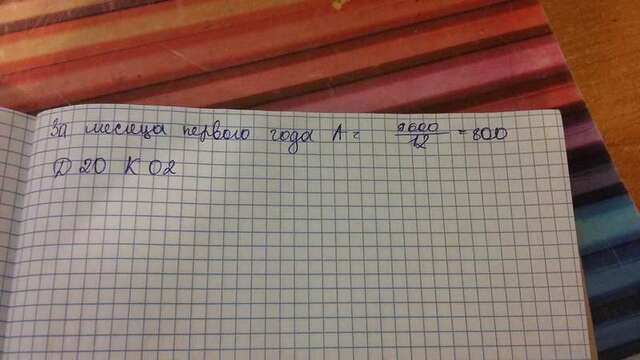 За месяца первого года А = 9600/12 = 800
Д 20 К 02